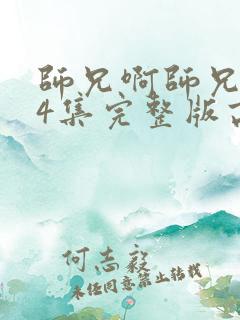 師兄啊師兄
4集完整版
何志毅
未经同意禁止转载